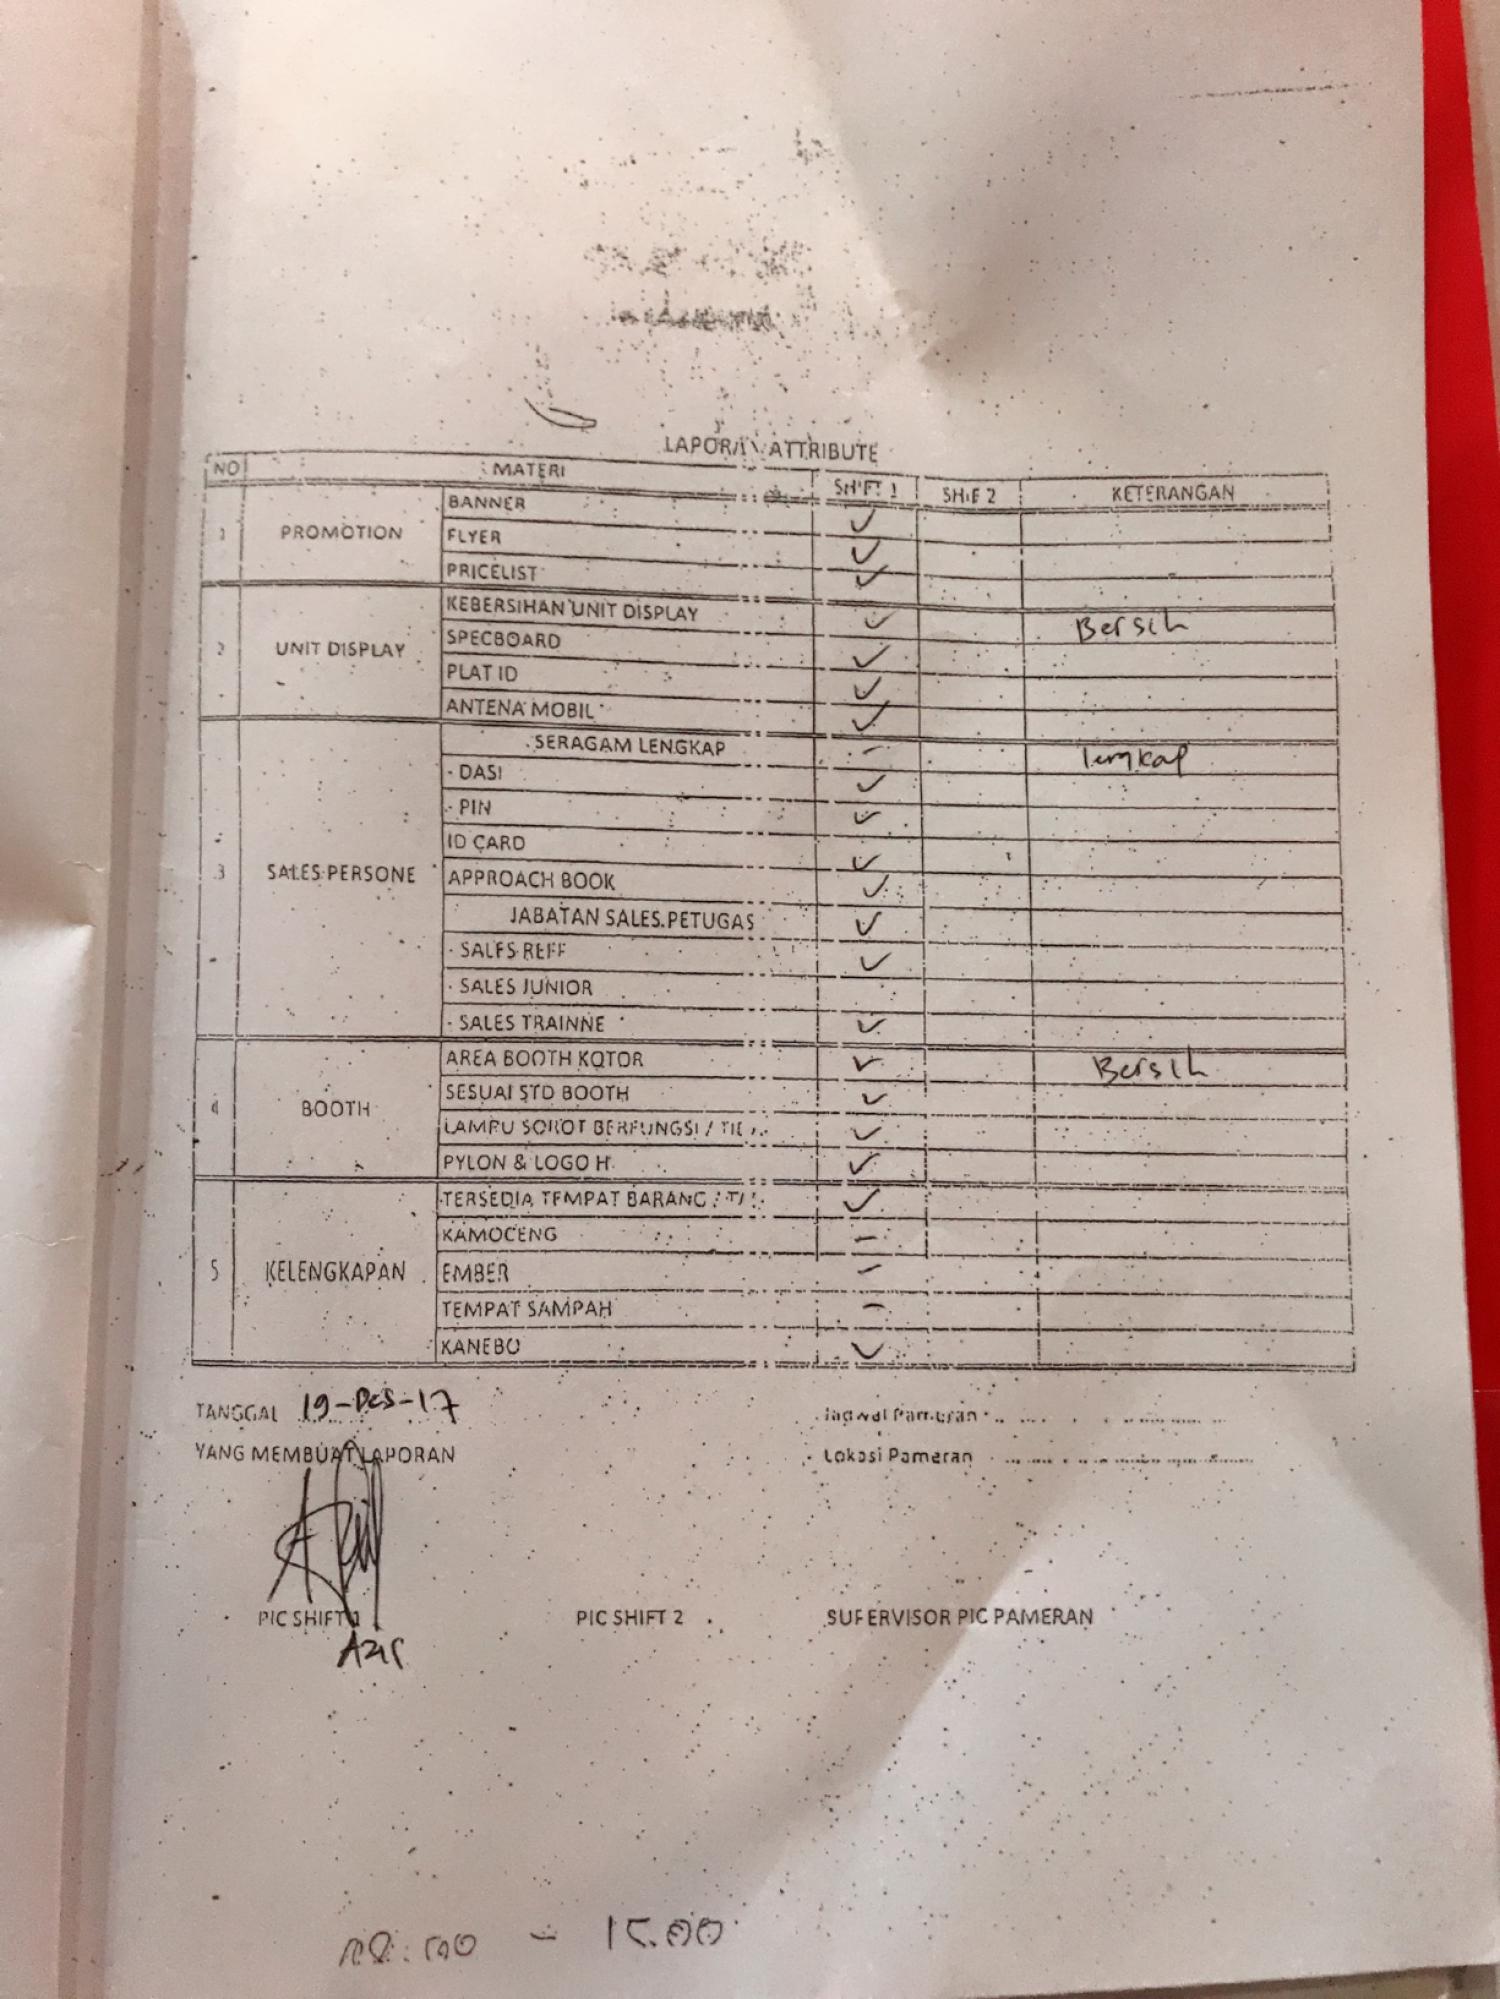 LAPORAN ATTRIBUTE
NO MATERI SHIFT 1 SHIF 2 KETERANGAN
1 PROMOTION BANNER ✓
FLYER ✓
PRICELIST ✓
2 UNIT DISPLAY KEBERSIHAN UNIT DISPLAY ✓ Bersih
SPECBOARD ✓
PLAT ID ✓
ANTENA MOBIL ✓
3 SALES PERSONE SERAGAM LENGKAP - lengkap
- DASI ✓
- PIN ✓
ID CARD ✓
APPROACH BOOK ✓
JABATAN SALES PETUGAS ✓
- SALES REFF ✓
- SALES JUNIOR
- SALES TRAINNE ✓
4 BOOTH AREA BOOTH KOTOR ✓ Bersih
SESUAI STD BOOTH ✓
LAMPU SOROT BERFUNGSI / ✓
PYLON & LOGO H ✓
5 KELENGKAPAN TERSEDIA TEMPAT BARANG / ✓
KAMOCENG -
EMBER -
TEMPAT SAMPAH -
KANEBO ✓
TANGGAL 19-Des-17 Jadwal Pameran
YANG MEMBUAT LAPORAN Lokasi Pameran
PIC SHIFT 1 PIC SHIFT 2 SUPERVISOR PIC PAMERAN
- 15.00